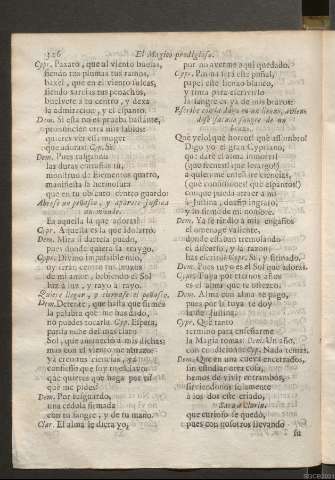 126 El Magico prodigioso.
Cyp. Paxaro, que al viento buelas,
siendo tus plumas tus ramos,
baxel, que en el viento sulcas,
siendo xarcias tus penachos,
buelvete a tu centro, y dexa
la admiracion, y el espanto.
Dem. Si esta no es prueba bastante,
pronuncien otra mis labios:
quieres ver essa muger
que adoras? Cyp. Si.
Dem. Pues rasgando
las duras entrañas tu,
monstruo de Elementos quatro,
manifiesta la hermosura
que en tu obscuro centro guardo:
Abrese un peñasco, y aparece Justina
durmiendo.
Es aquella la que adoras?
Cyp. Aquella es la que idolatro.
Dem. Mira si dartela puedo,
pues donde quiero la traygo.
Cyp. Divino impossible mio,
oy seràn centro tus brazos
de mi amor, bebiendo el Sol
luz à luz, y rayo à rayo.
Quiere llegar, y cierrase el peñasco.
Dem. Detente, que hasta que firmes
la palabra que me has dado,
no puedes tocarla. Cyp. Espera,
parda nube del mas claro
Sol, que amaneciò à mis dichas:
mas con el viento me abrazo:
yà creo tus ciencias, yà
confiesso que soy tu esclavo:
què quieres que haga por tì?
què me pides?
Dem. Por resguardo,
una cedula firmada
con tu sangre, y de tu mano.
Clar. El alma le diera yo,
por no averme aqui quedado.
Cyp. Pluma serà este puñal,
papel este lienzo blanco,
y tinta para escrivirlo
la sangre es yà de mis brazos.
Escribe con la daga en un lienzo, aviendose
sacado sangre de un
brazo.
Què yelo! què horror! què assombro!
Digo yo el gran Cypriano,
que darè el alma inmortal
(què frenesì! què letargo!)
à quien me enseñare ciencias,
(què confusiones! què espantos!)
con que pueda atraer à mi
à Justina, dueño ingrato,
y lo firmè de mi nombre.
Dem. Yà se rindiò à mis engaños
el omenage valiente,
donde estaban tremolando
el discurso, y la razon:
has escrito? Cyp. Si, y firmado.
Dem. Pues tuyo es el Sol que adoras.
Cyp. Tuya por eternos años
es el alma que te ofrezco.
Dem. Alma con alma te pago,
pues por la tuya te doy
la de Justina.
Cyp. Què tanto
termino para enseñarme
la Magia tomas? Dem. Un año,
con condicion: Cyp. Nada temas.
Dem. Que en una cueva encerrados,
sin estudiar otra cosa,
hemos de vivir entrambos,
sirviendonos solamente
à los dos este criado,
Saca à Clarin.
que curioso se quedò,
pues con nosotros llevando
su